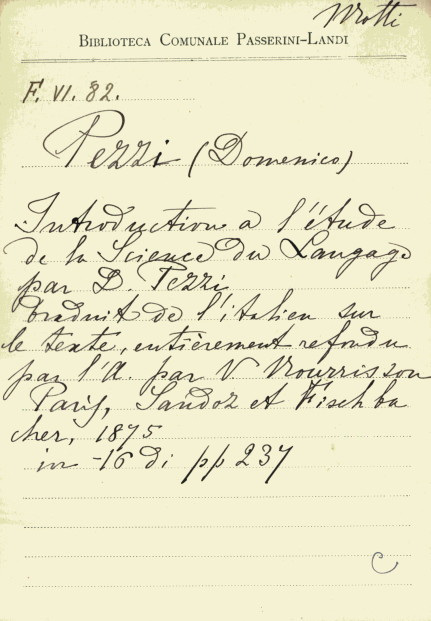 Wrotti
BIBLIOTECA COMUNALE PASSERINI-LANDI
F. VI. 82.
Pezzi (Domenico)
Introduction a l'étude
de la Science du Langage
par D. Pezzi
traduit de l'italien sur
le texte, entièrement refondu
par l'A. par V Nourrisson
Paris, Sandoz et Fischba
cher, 1875
in -16 di pp 237
C